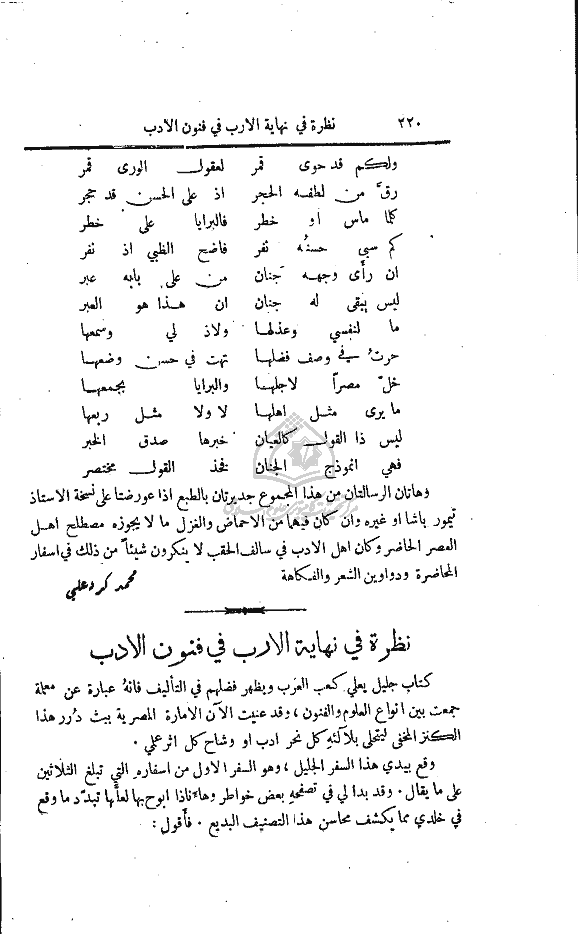 ٢٢٠ نظرة في نهاية الارب في فنون الادب
ولكم قد حوى قمر لعقول الورى قمر
رقّ من لطفه الحجر اذ على الحسن قد حجر
كلما ماس او خطر فالبرايا على خطر
كم سبي حسنهُ نفر فاضح الظبي اذ نفر
ان رأى وجهه جنان من على بابه عبر
ليس يبقى له جنان ان هذا هو العبر
ما لنفسي وعذلها ولاذ لي وسمعها
حرتُ في وصف فضلها تهت في حسن وضعها
خلّ مصراً لاجلها والبرايا بجمعها
ما يرى مثل اهلها لا ولا مثل ربعها
ليس ذا القول كالعيان خبرها صدق الخبر
فهي انموذج الجنان فخذ القول مختصر
وهاتان الرسالتان من هذا المجموع جديرتان بالطبع اذا عورضتا على نسخة الاستاذ
تيمور باشا او غيره وان كان فيهما من الاحماض والغزل ما لا يجوزه مصطلح اهل
العصر الحاضر وكان اهل الادب في سالف الحقب لا ينكرون شيئاً من ذلك في اسفار
المحاضرة ودواوين الشعر والفكاهة محمد كرد علي
نظرة في نهاية الارب في فنون الادب
كتاب جليل يعلي كعب العرب ويظهر فضلهم في التأليف فانهُ عبارة عن معلمة
جمعت بين انواع العلوم والفنون ، وقد عنيت الآن الامارة المصرية ببث دُرر هذا
الكنز المخفي ليتحلى بلآلئهِ كل نحر ادب او وشاح كل اثر علمي .
وقع بيدي هذا السفر الجليل ، وهو السفر الاول من اسفاره التي تبلغ الثلاثين
على ما يقال . وقد بدا لي في تصفحهِ بعض خواطر وهاءنذا ابوح بها لعلها تبدّد ما وقع
في خلدي مما يكشف محاسن هذا التصنيف البديع . فأقول :